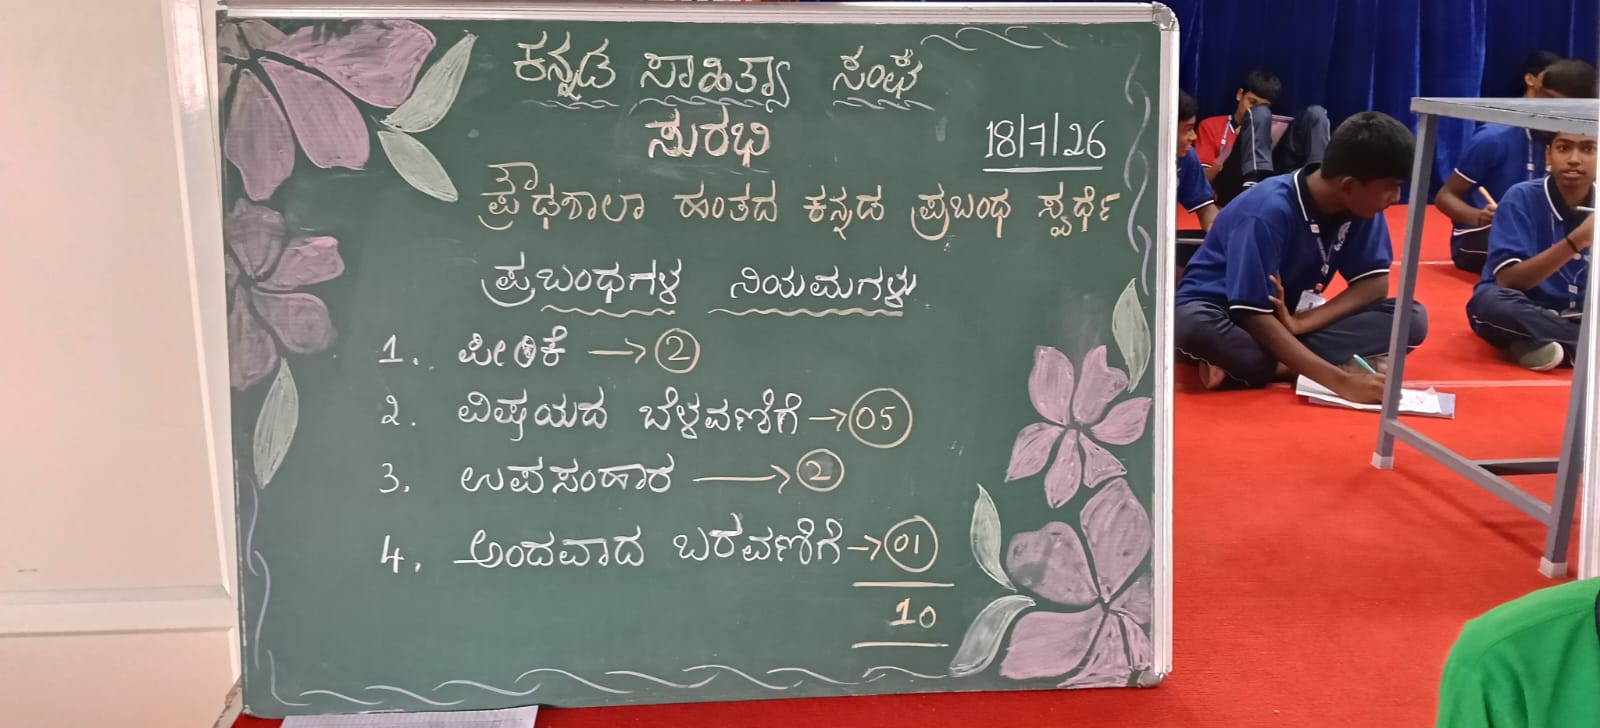 ಕನ್ನಡ ಸಾಹಿತ್ಯಾ ಸಂಘ
ಸುರಭಿ
18/7/26
ಪ್ರೌಢಶಾಲಾ ಹಂತದ ಕನ್ನಡ ಪ್ರಬಂಧ ಸ್ಪರ್ಧೆ
ಪ್ರಬಂಧಗಳ ನಿಯಮಗಳು
1. ಪೀಠಿಕೆ → 2
2. ವಿಷಯದ ಬೆಳವಣಿಗೆ → 05
3. ಉಪಸಂಹಾರ → 2
4. ಅಂದವಾದ ಬರವಣಿಗೆ → 01
10